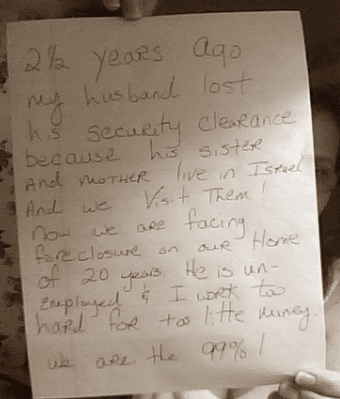 2½ years ago
my husband lost
his security clearance
because his sister
And mother live in Israel
And we Visit Them!
now we are facing
foreclosure on our Home
of 20 years. He is un-
employed & I work too
hard for too little money.
we are the 99%!